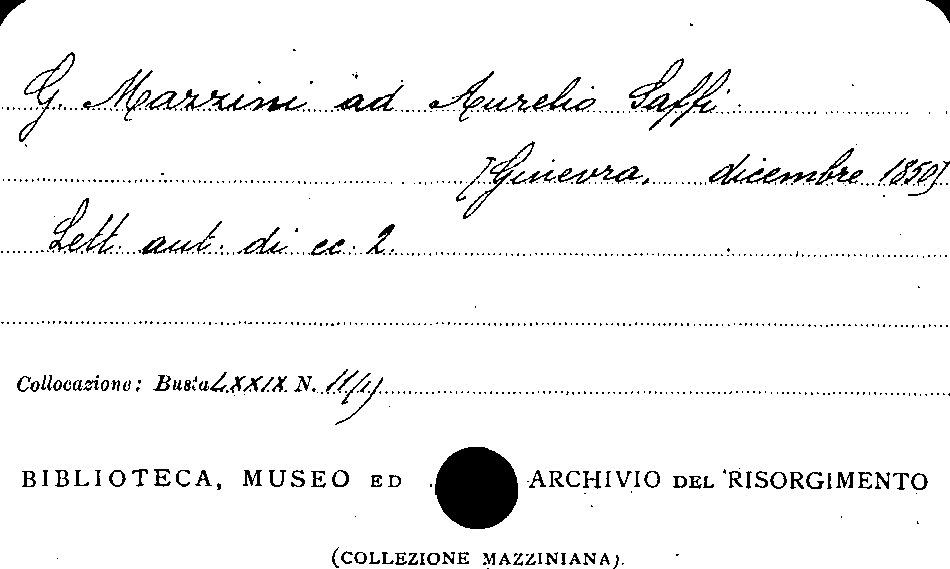 G. Mazzini ad Aurelio Saffi
[Ginevra, dicembre 1850]
Lett. aut. di cc. 2.
Collocazione: Busta LXXIX N. 11/1)
BIBLIOTECA, MUSEO ED ARCHIVIO DEL RISORGIMENTO
(COLLEZIONE MAZZINIANA).